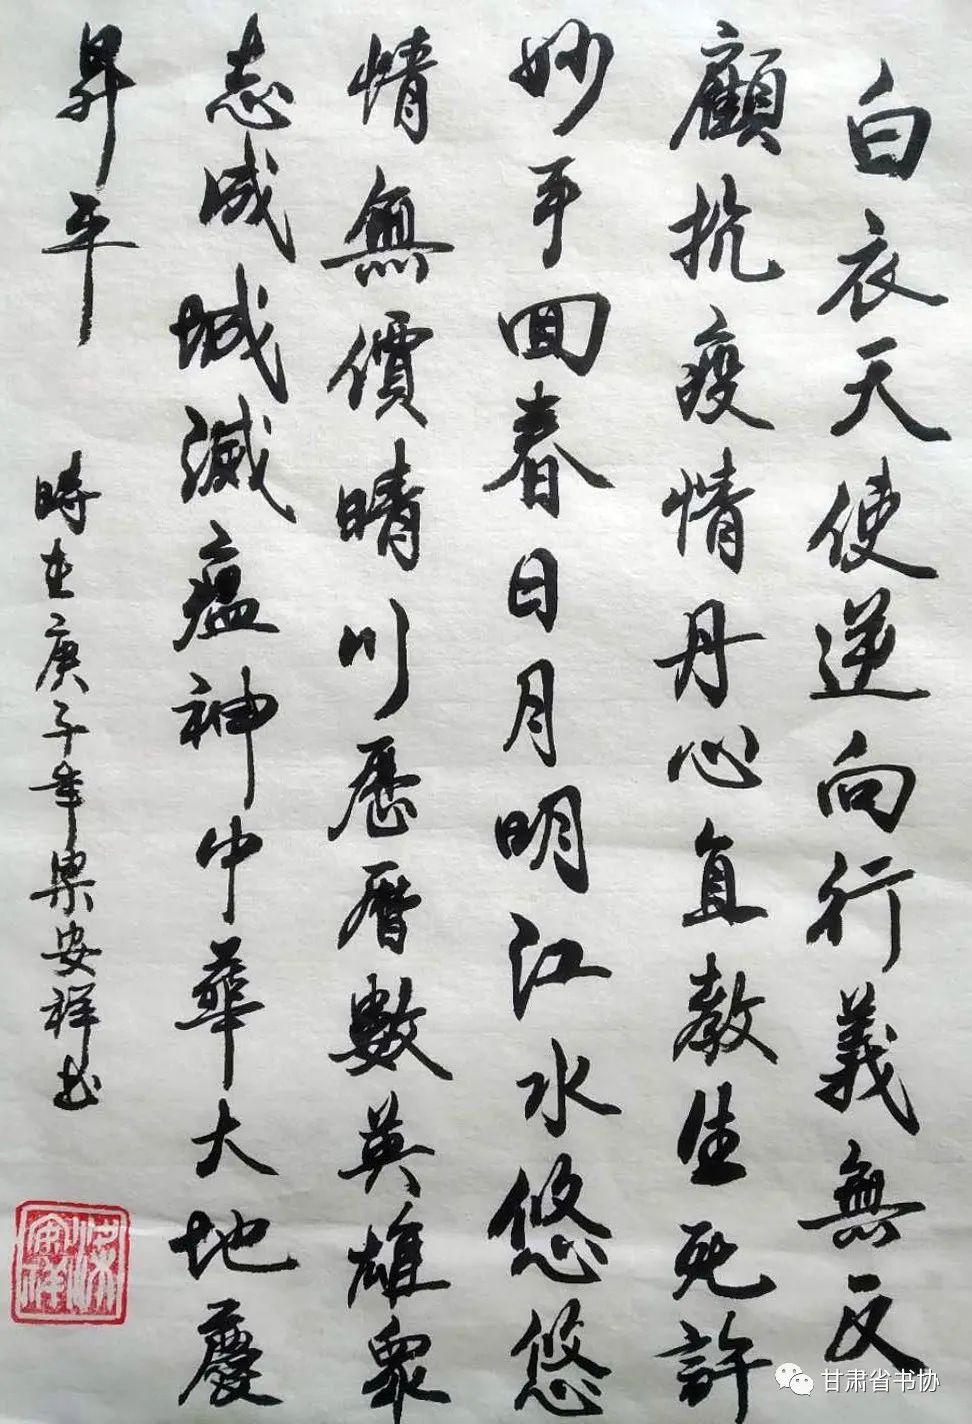 白衣天使逆向行義無反
顧抗疫情丹心直教生死許
妙手回春日月明江水悠悠
情無價晴川歷曆數英雄眾
志成城滅瘟神中華大地慶
昇平
時在庚子年梁安祥書
梁安祥
甘肃省书协